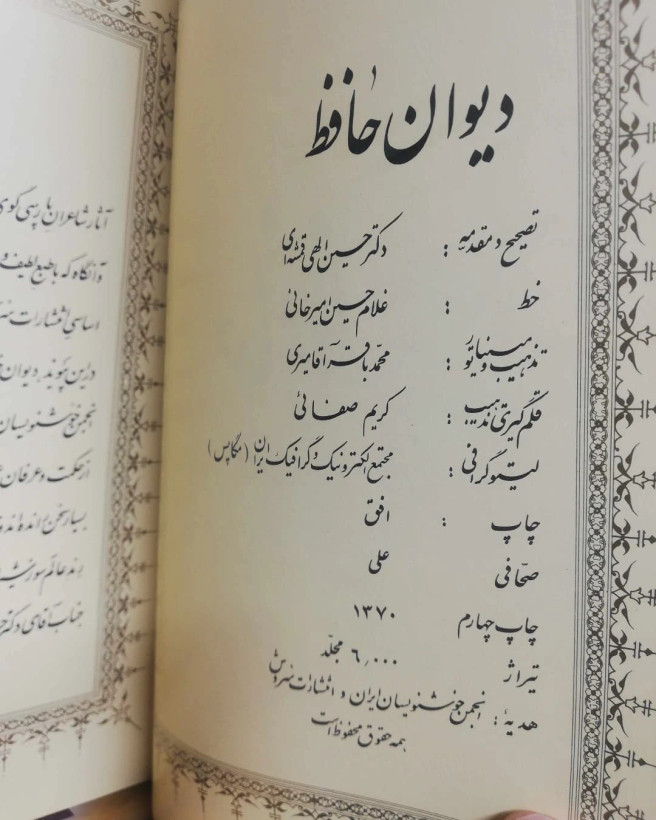 دیوان حافظ
تصحیح و مقدمه : دکتر حسین الهی قمشه‌ای
خط : غلامحسین امیرخانی
تذهیب و مینیاتور : محمدباقر آقامیری
قلم‌گیری تذهیب : کریم صفائی
لیتوگرافی : مجتمع الکترونیک و گرافیک ایران (مگاپس)
چاپ : افق
صحافی علی
چاپ چهارم ۱۳۷۰
تیراژ ۶,۰۰۰ مجلد
هدیهٔ : انجمن خوشنویسان ایران و انتشارات سروش
همه حقوق محفوظ است
آثار شاعران پارسی گوی
و آنگاه که با طبع لطیف و
اساسی انتشارات سر
در این پیوند، دیوان
انجمن خوشنویسان
از حکمت و عرفان
بسیار سخن رانده‌اند و
رند عالم سوز
جناب آقای دکتر